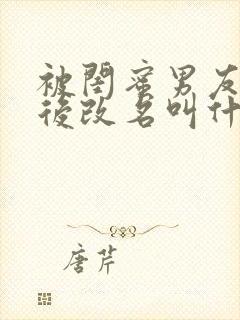 被閏蜜男友
後改名叫什
唐芹